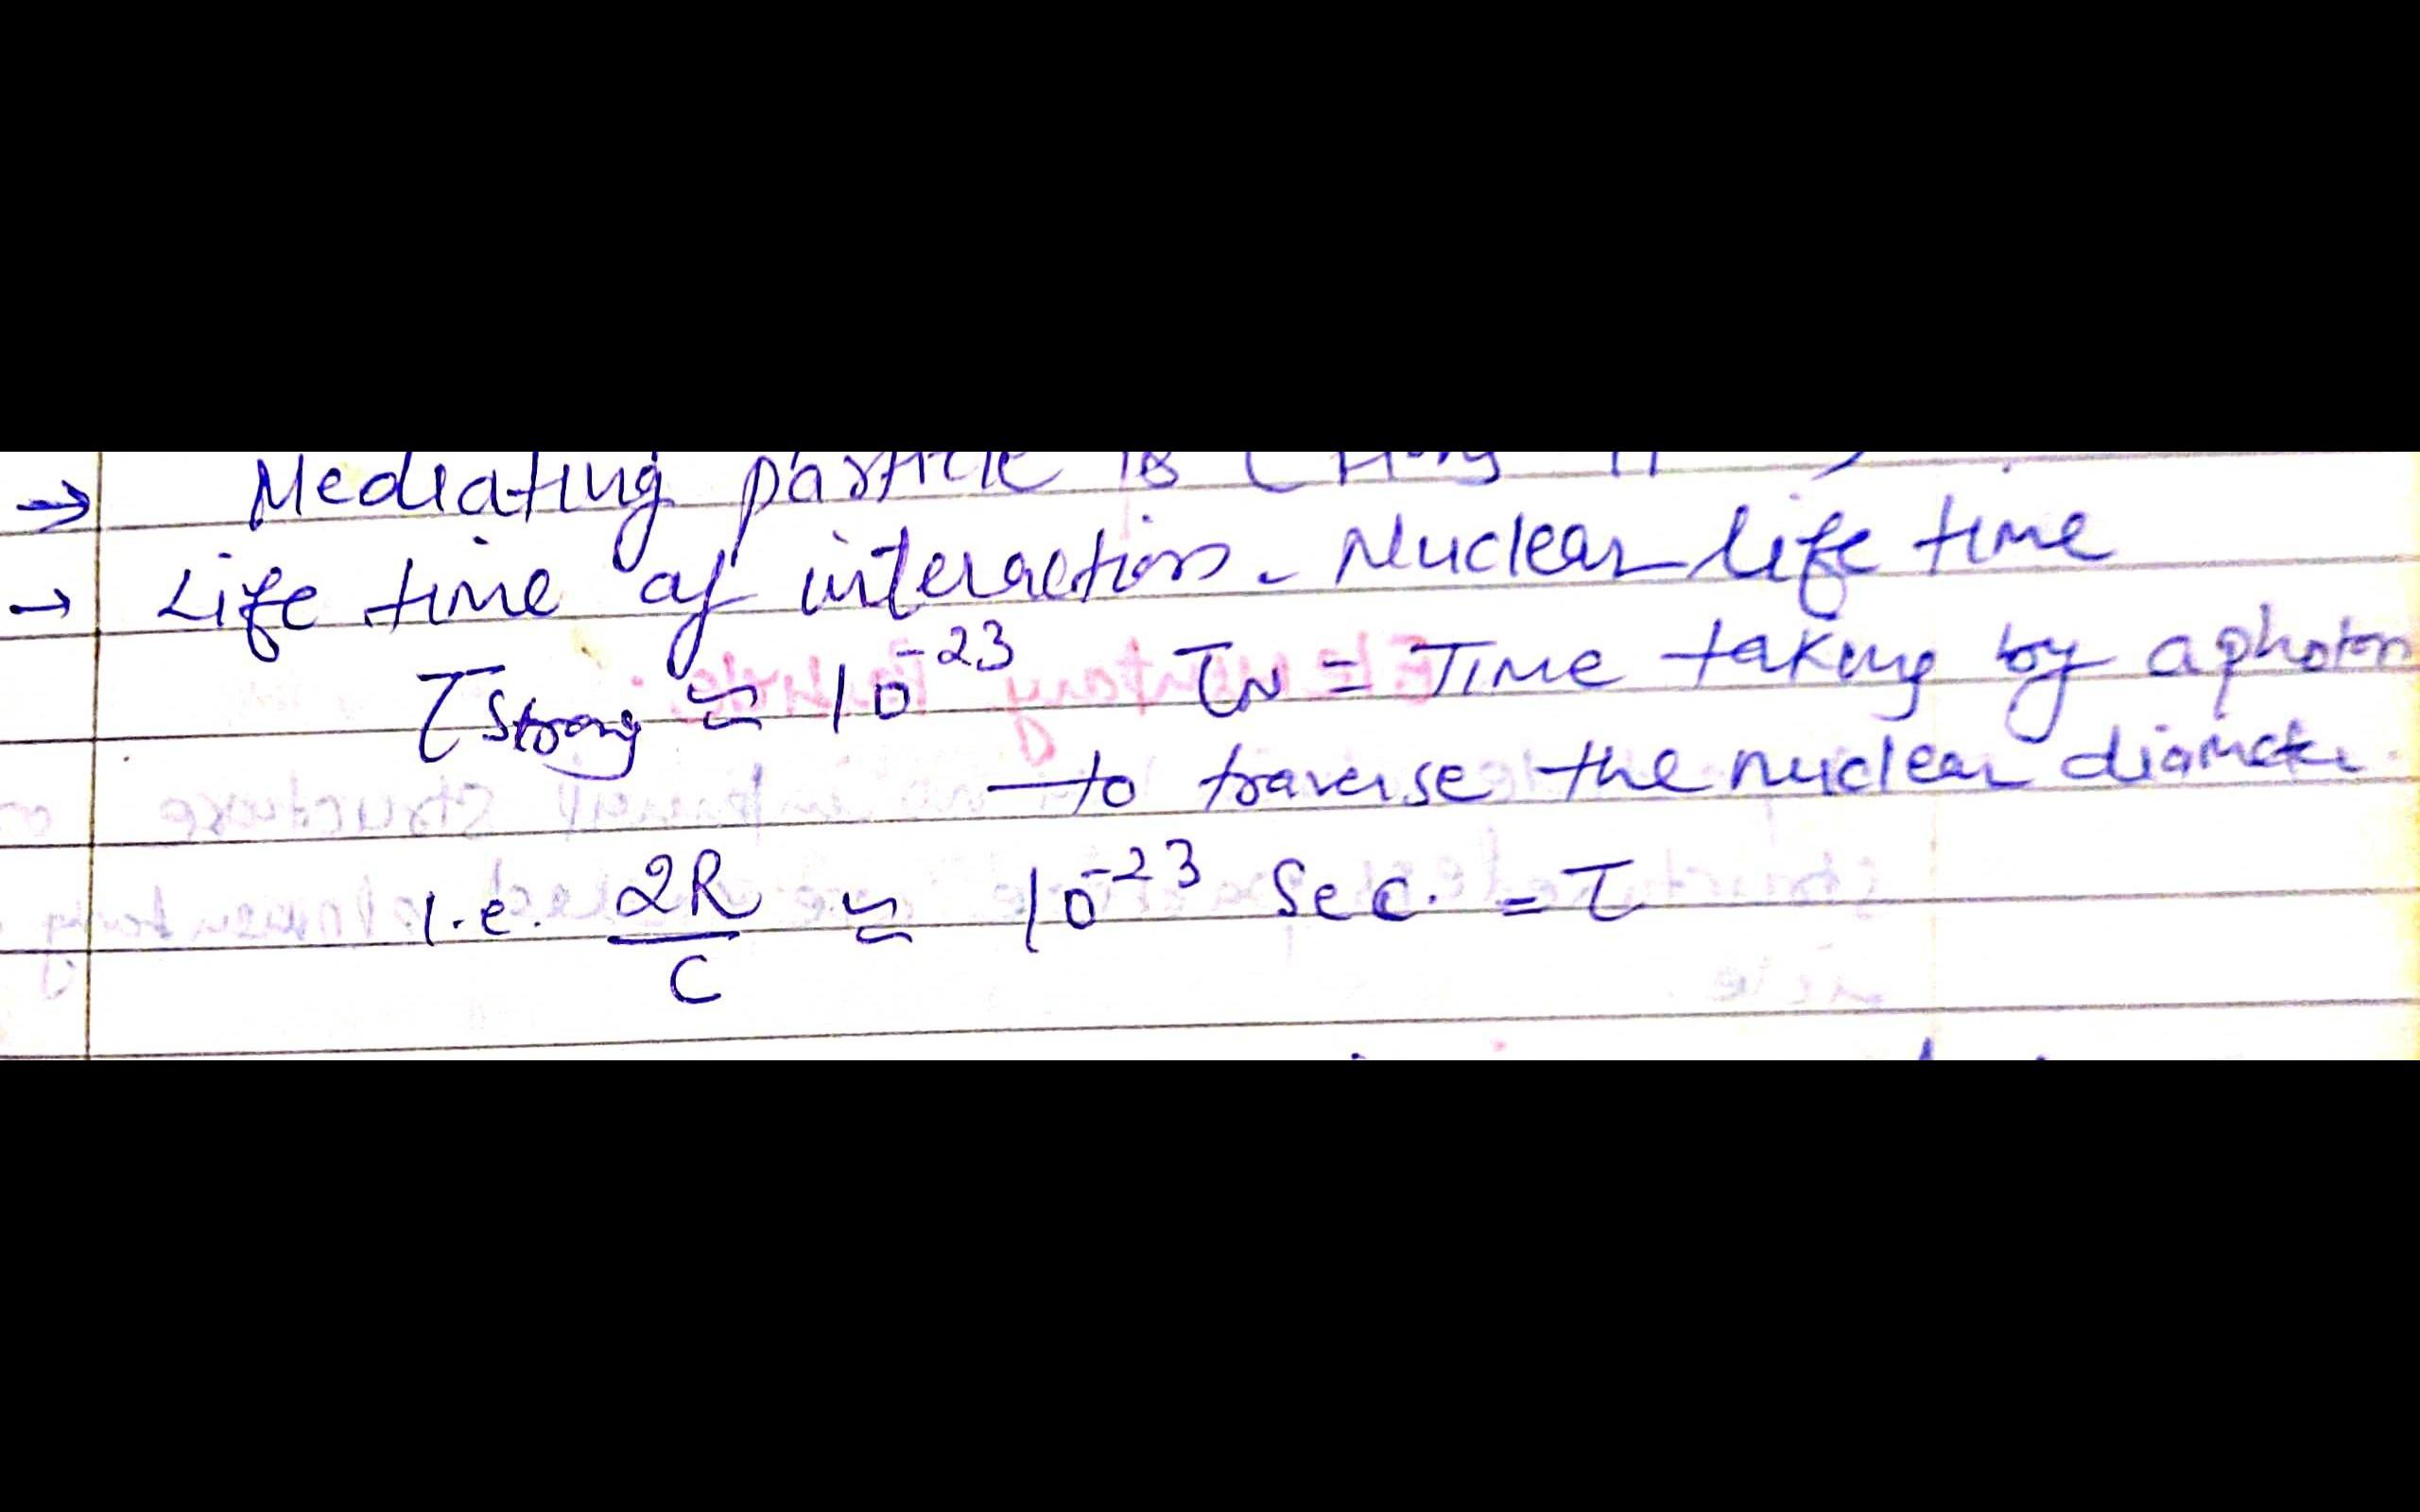 → Mediating particle is
→ Life time of interaction. Nuclear life time
τstrong ≃ 10⁻²³ τN = Time taking by a photon
to traverse the nuclear diameter
i.e. 2R/C ≃ 10⁻²³ Sec. = τ